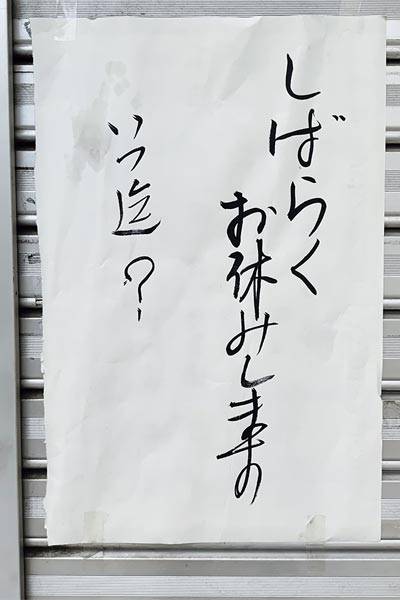 しばらく
お休みしますの
いつ迄?